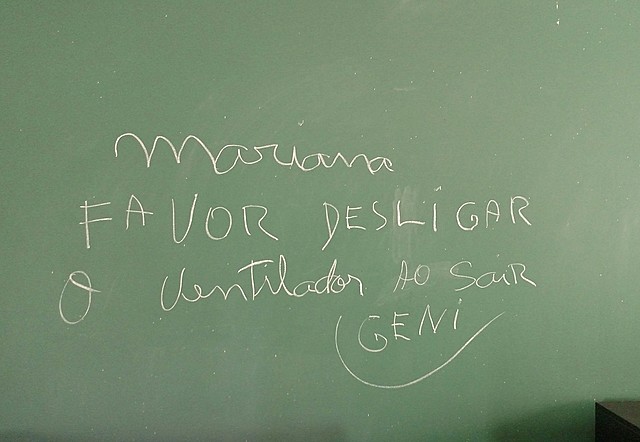 Mariana
FAVOR DESLIGAR
O Ventilador AO SAIR
GENI